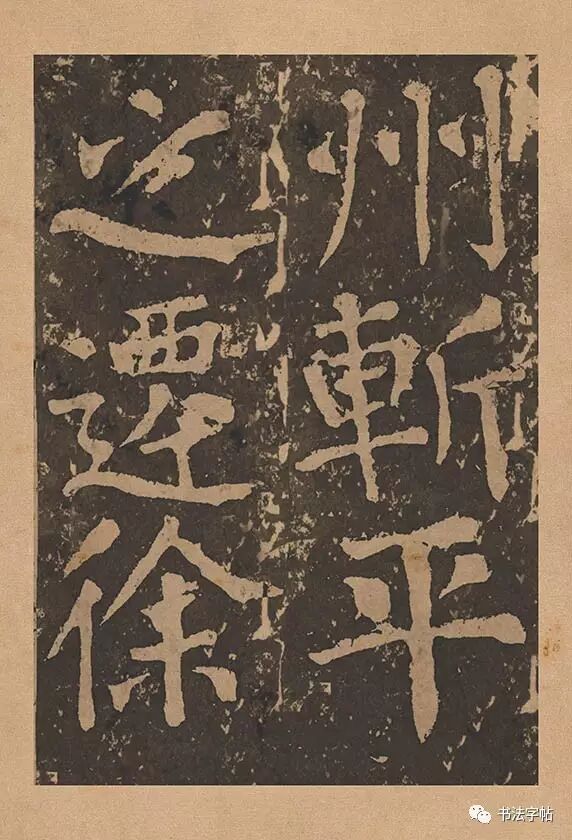 州斬平
之遷徐
书法字帖